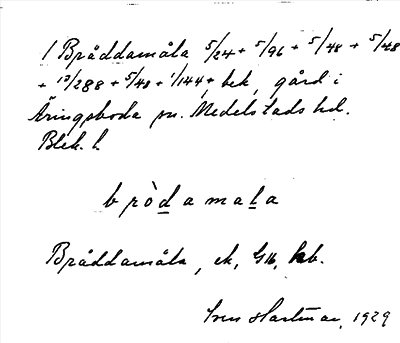 1 Bråddamåla 5/24 + 5/96 + 5/48 + 5/48
+ 13/288 + 5/48 + 1/144, bek, gård i
Åringsboda sn. Medelstads hd.
Blek. l.
b r ò d a m a l a
Bråddamåla, ek, Gtb, hb.
Sven Hartman, 1929